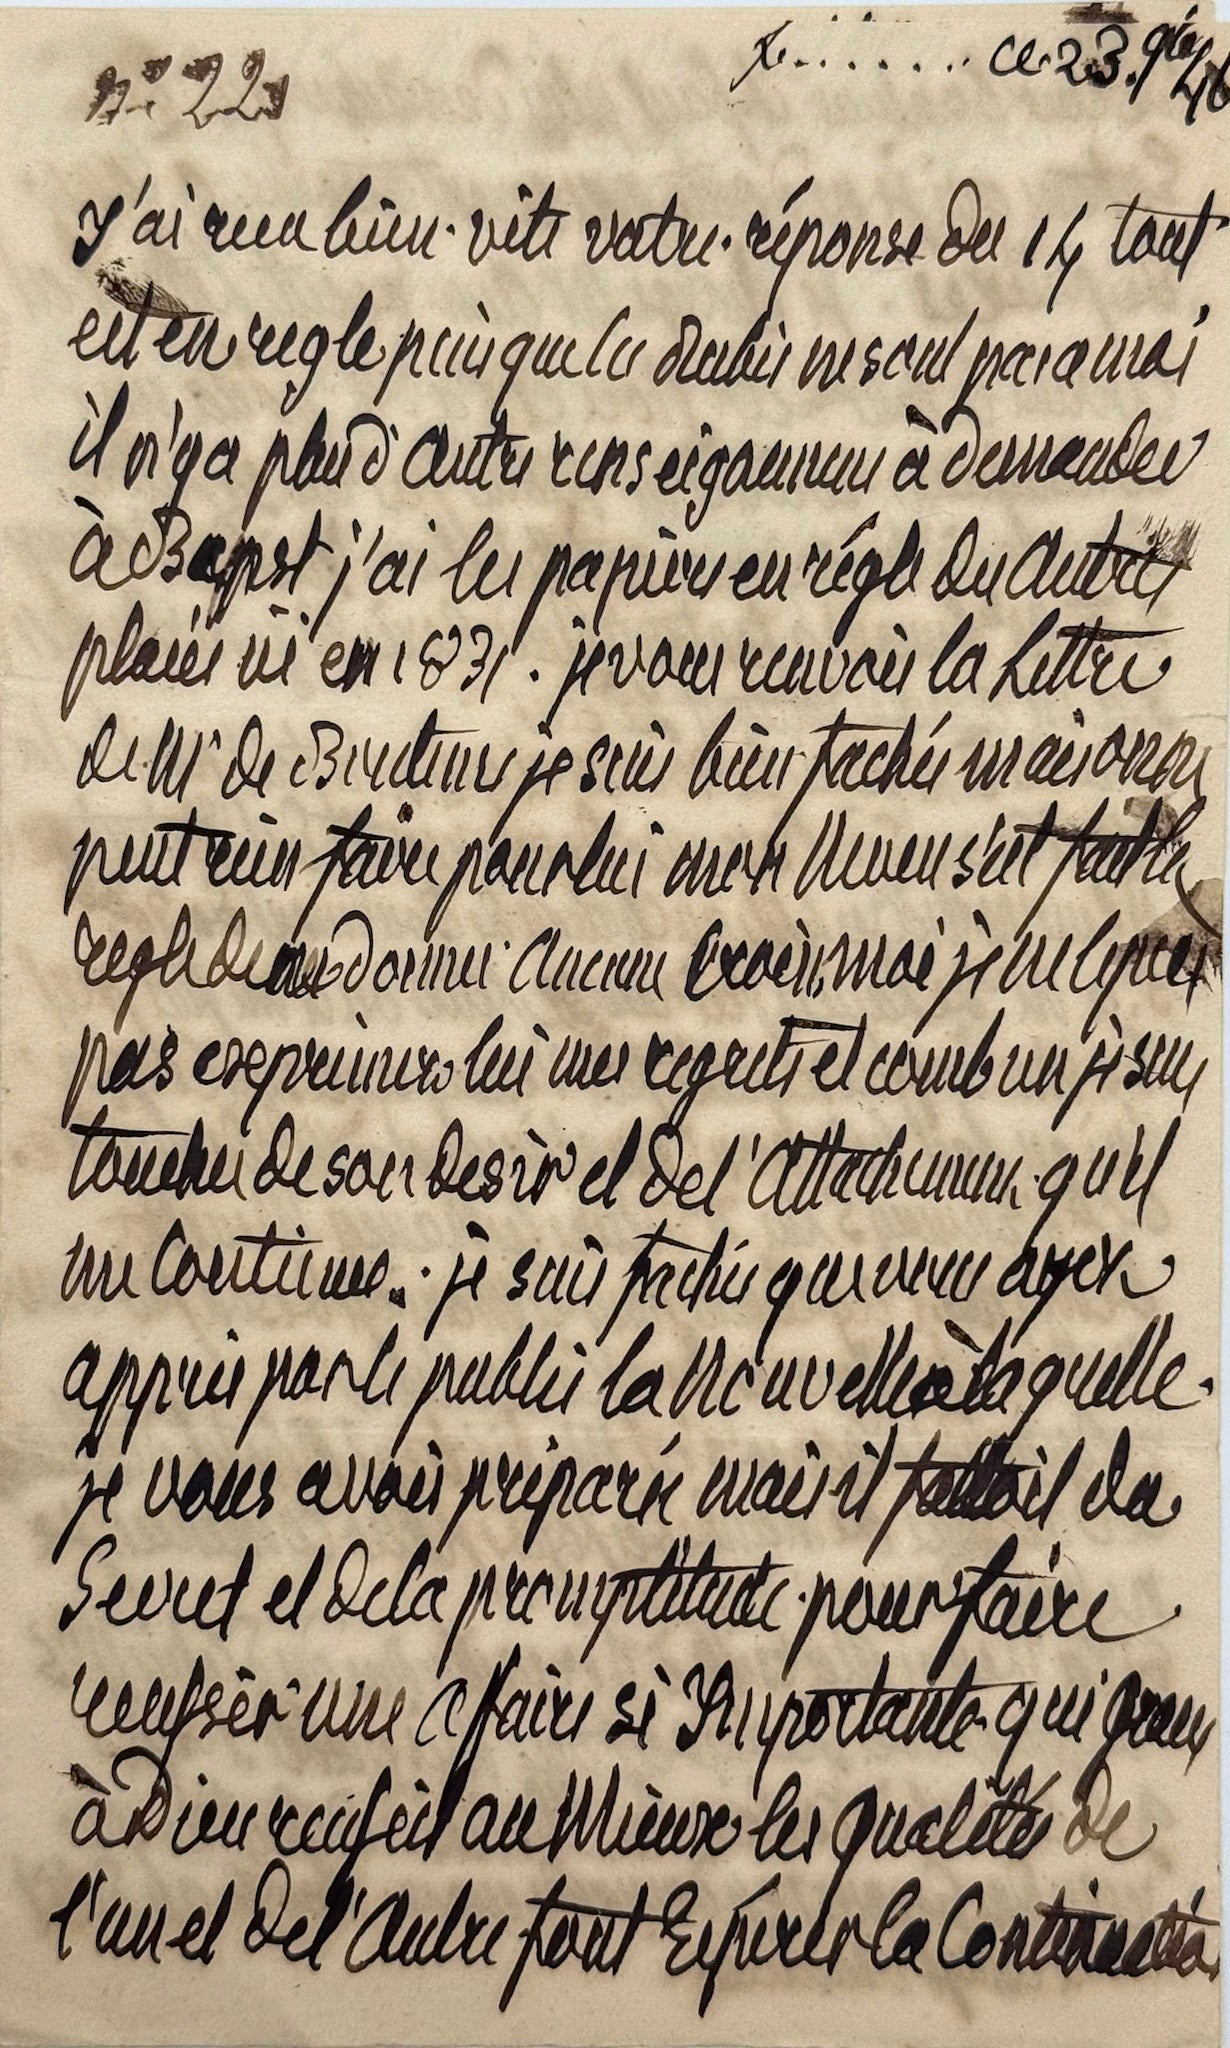 n° 22
F....... ce 23. 9bre 46
J'ai reçu bien vite votre réponse du 14 tout
est en regle puisque les diables ne sont pas a moi
il n'y a plus d'autre renseignemens à demander
à Bapst j'ai les papiers en régle des autres
placés ici en 1831. je vous renvois la Lettre
de Mr de je suis bien fachée mais on ne
peut rien faire pour lui mon Neveu s'est fait la
regle de ne donner aucune Croix, moi je ne le puis
pas exprimez lui mes regrets et combien je suis
touchée de son desir et de l'Attachement qu'il
me Continue. je suis fachée que vous ayez
appris par le public la Nouvelle à laquelle
je vous avois préparée mais il falloit du
Secret et de la promptitude pour faire
reussir une affaire si Importante qui grace
à Dieu reussit au Mieux les qualités de
l'un et de l'Autre font Espérer la Continuation